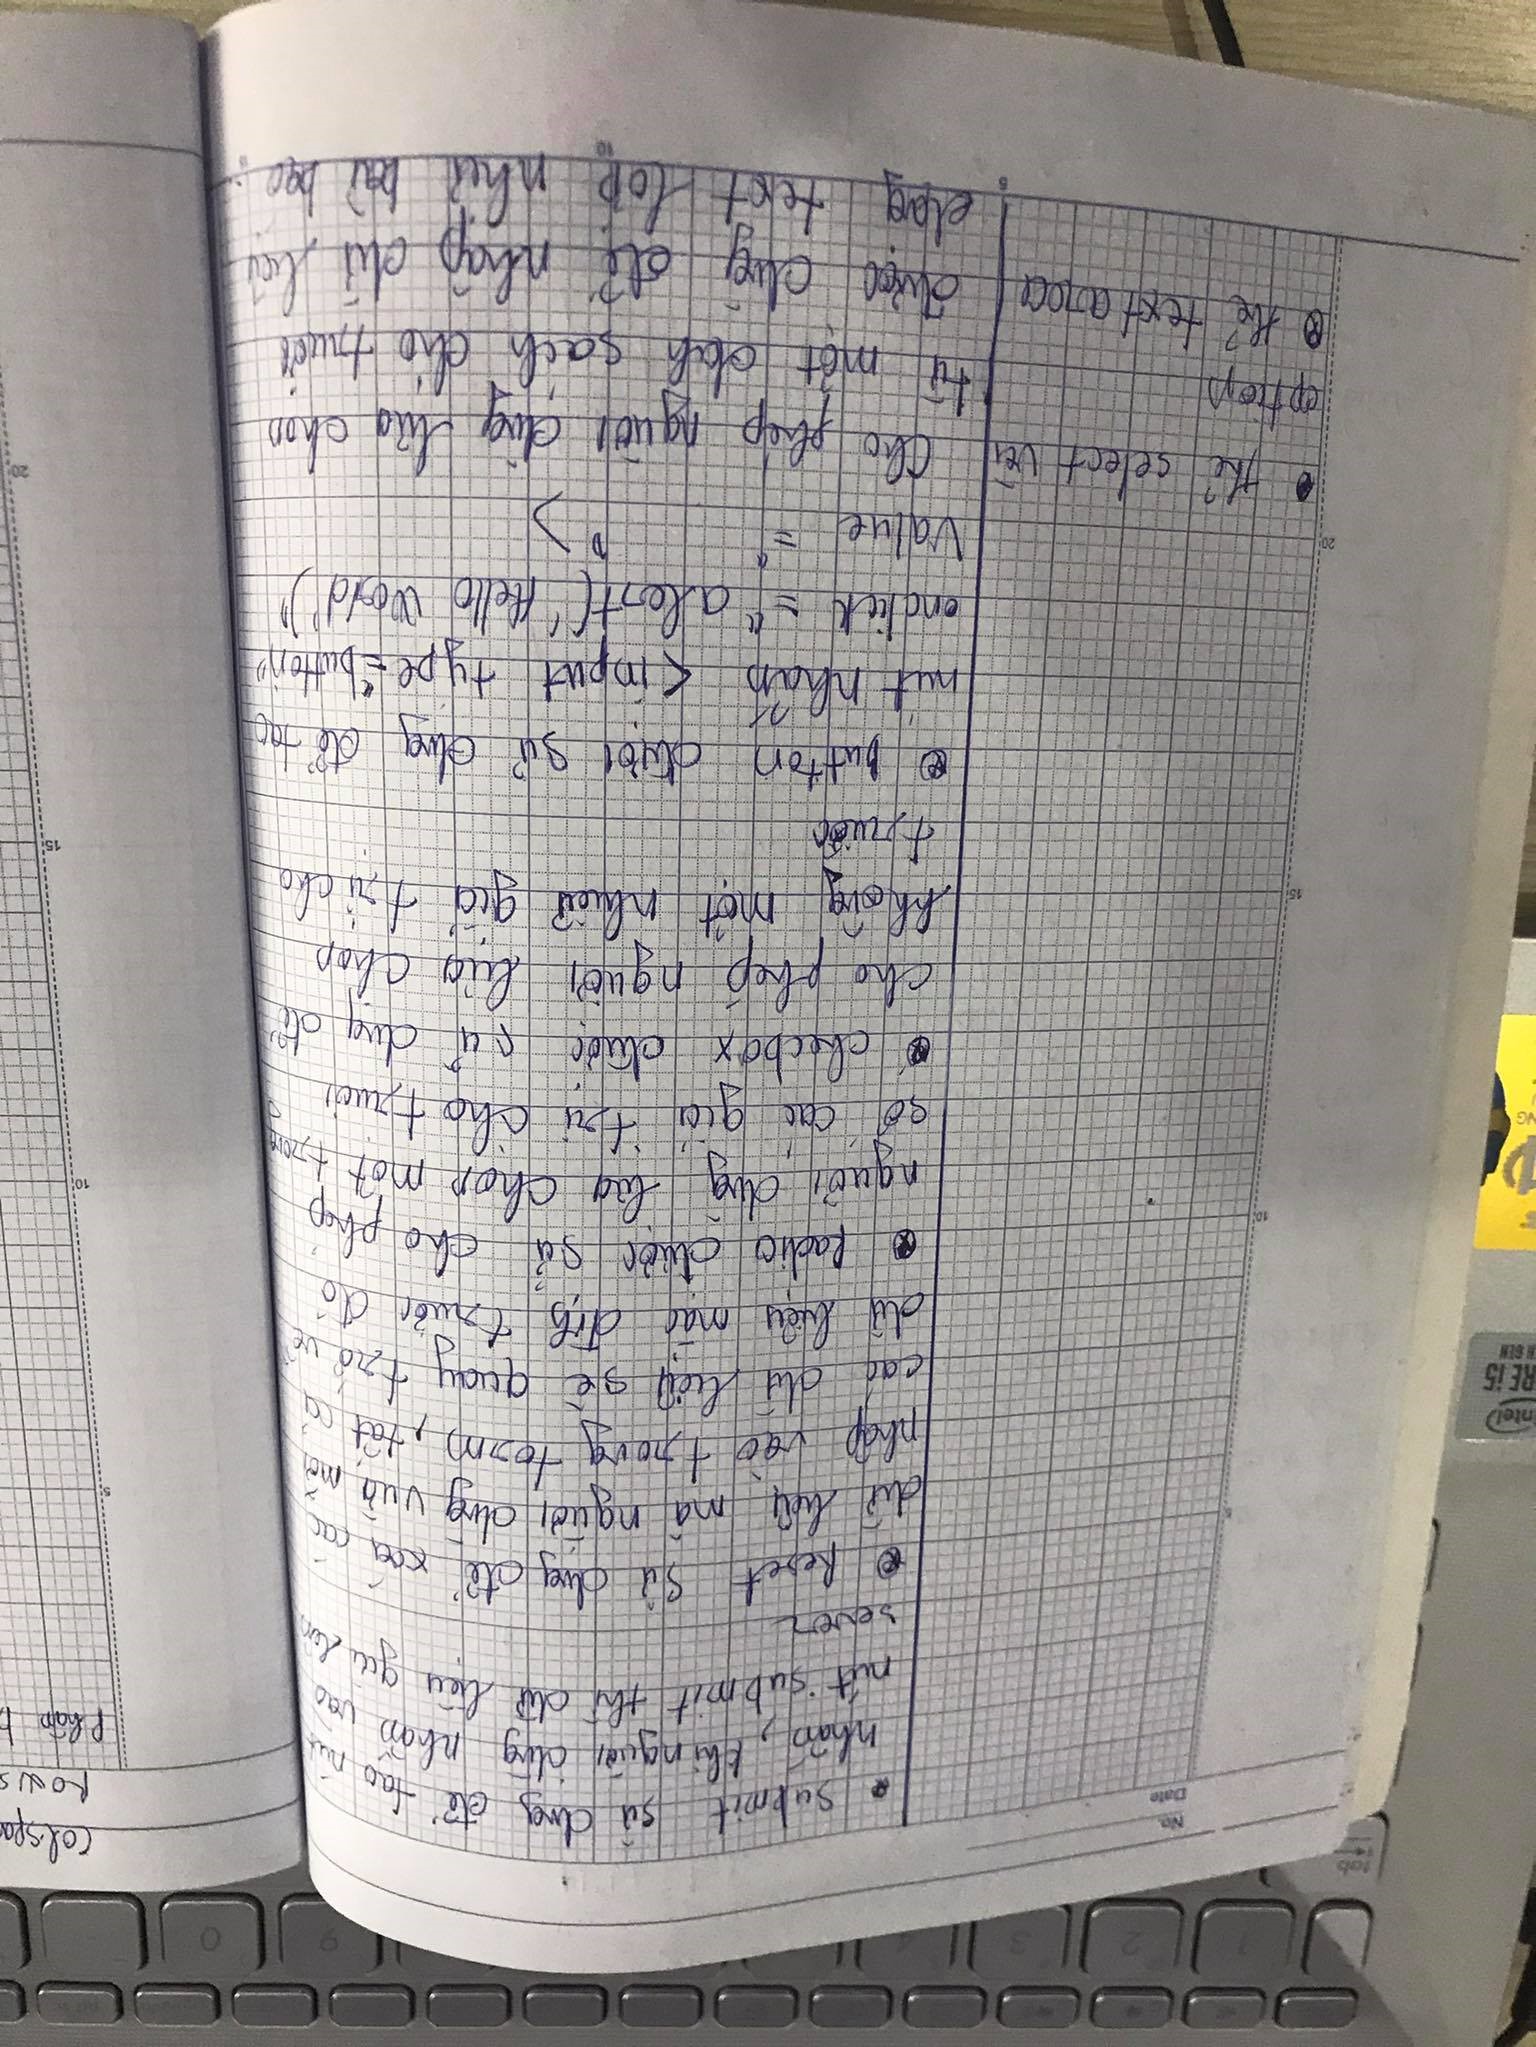 No.
Date
• Submit sử dụng để tạo nút
nhấn, khi người dùng nhấn vào
nút submit thì dữ liệu gửi lên
sever
• Reset sử dụng để xoá các
dữ liệu mà người dùng vừa mới
nhập vào trong form, tất cả
các dữ liệu sẽ quay trở về
dữ liệu mặc định trước đó
• Radio được sử cho phép
người dùng lựa chọn một trong
số các giá trị cho trước
• checbox được sử dụng để
cho phép người lựa chọn
không một nhiều giá trị cho
trước
• button được sử dụng để tạo
nút nhấn <input type="button"
onclick = "alert('Hello World')"
Value = " ">
• thẻ select với Cho phép người dùng lựa chọn
option từ một danh sách cho trước
• thẻ textarea được dùng để nhập dữ liệu
dạng text lớn như bài báo
Colspa
Rows
Phần
intel
CORE i5
tab
1
2
3
4
9
0
5
10
15
20
5
10
15
20
5
10